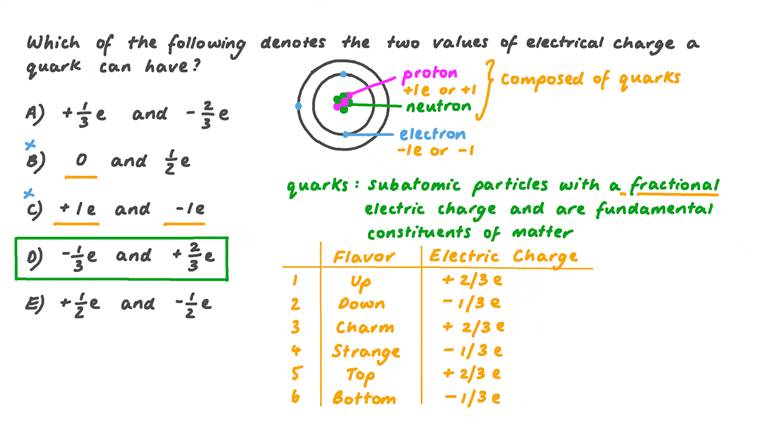 Which of the following denotes the two values of electrical charge a
quark can have?
A) +1/3 e and -2/3 e
x
B) 0 and 1/2 e
x
C) +1e and -1e
D) -1/3 e and +2/3 e
E) +1/2 e and -1/2 e
proton
+1e or +1
neutron
composed of quarks
electron
-1e or -1
quarks: subatomic particles with a fractional
electric charge and are fundamental
constituents of matter
Flavor Electric Charge
1 Up +2/3 e
2 Down -1/3 e
3 Charm +2/3 e
4 Strange -1/3 e
5 Top +2/3 e
6 Bottom -1/3 e